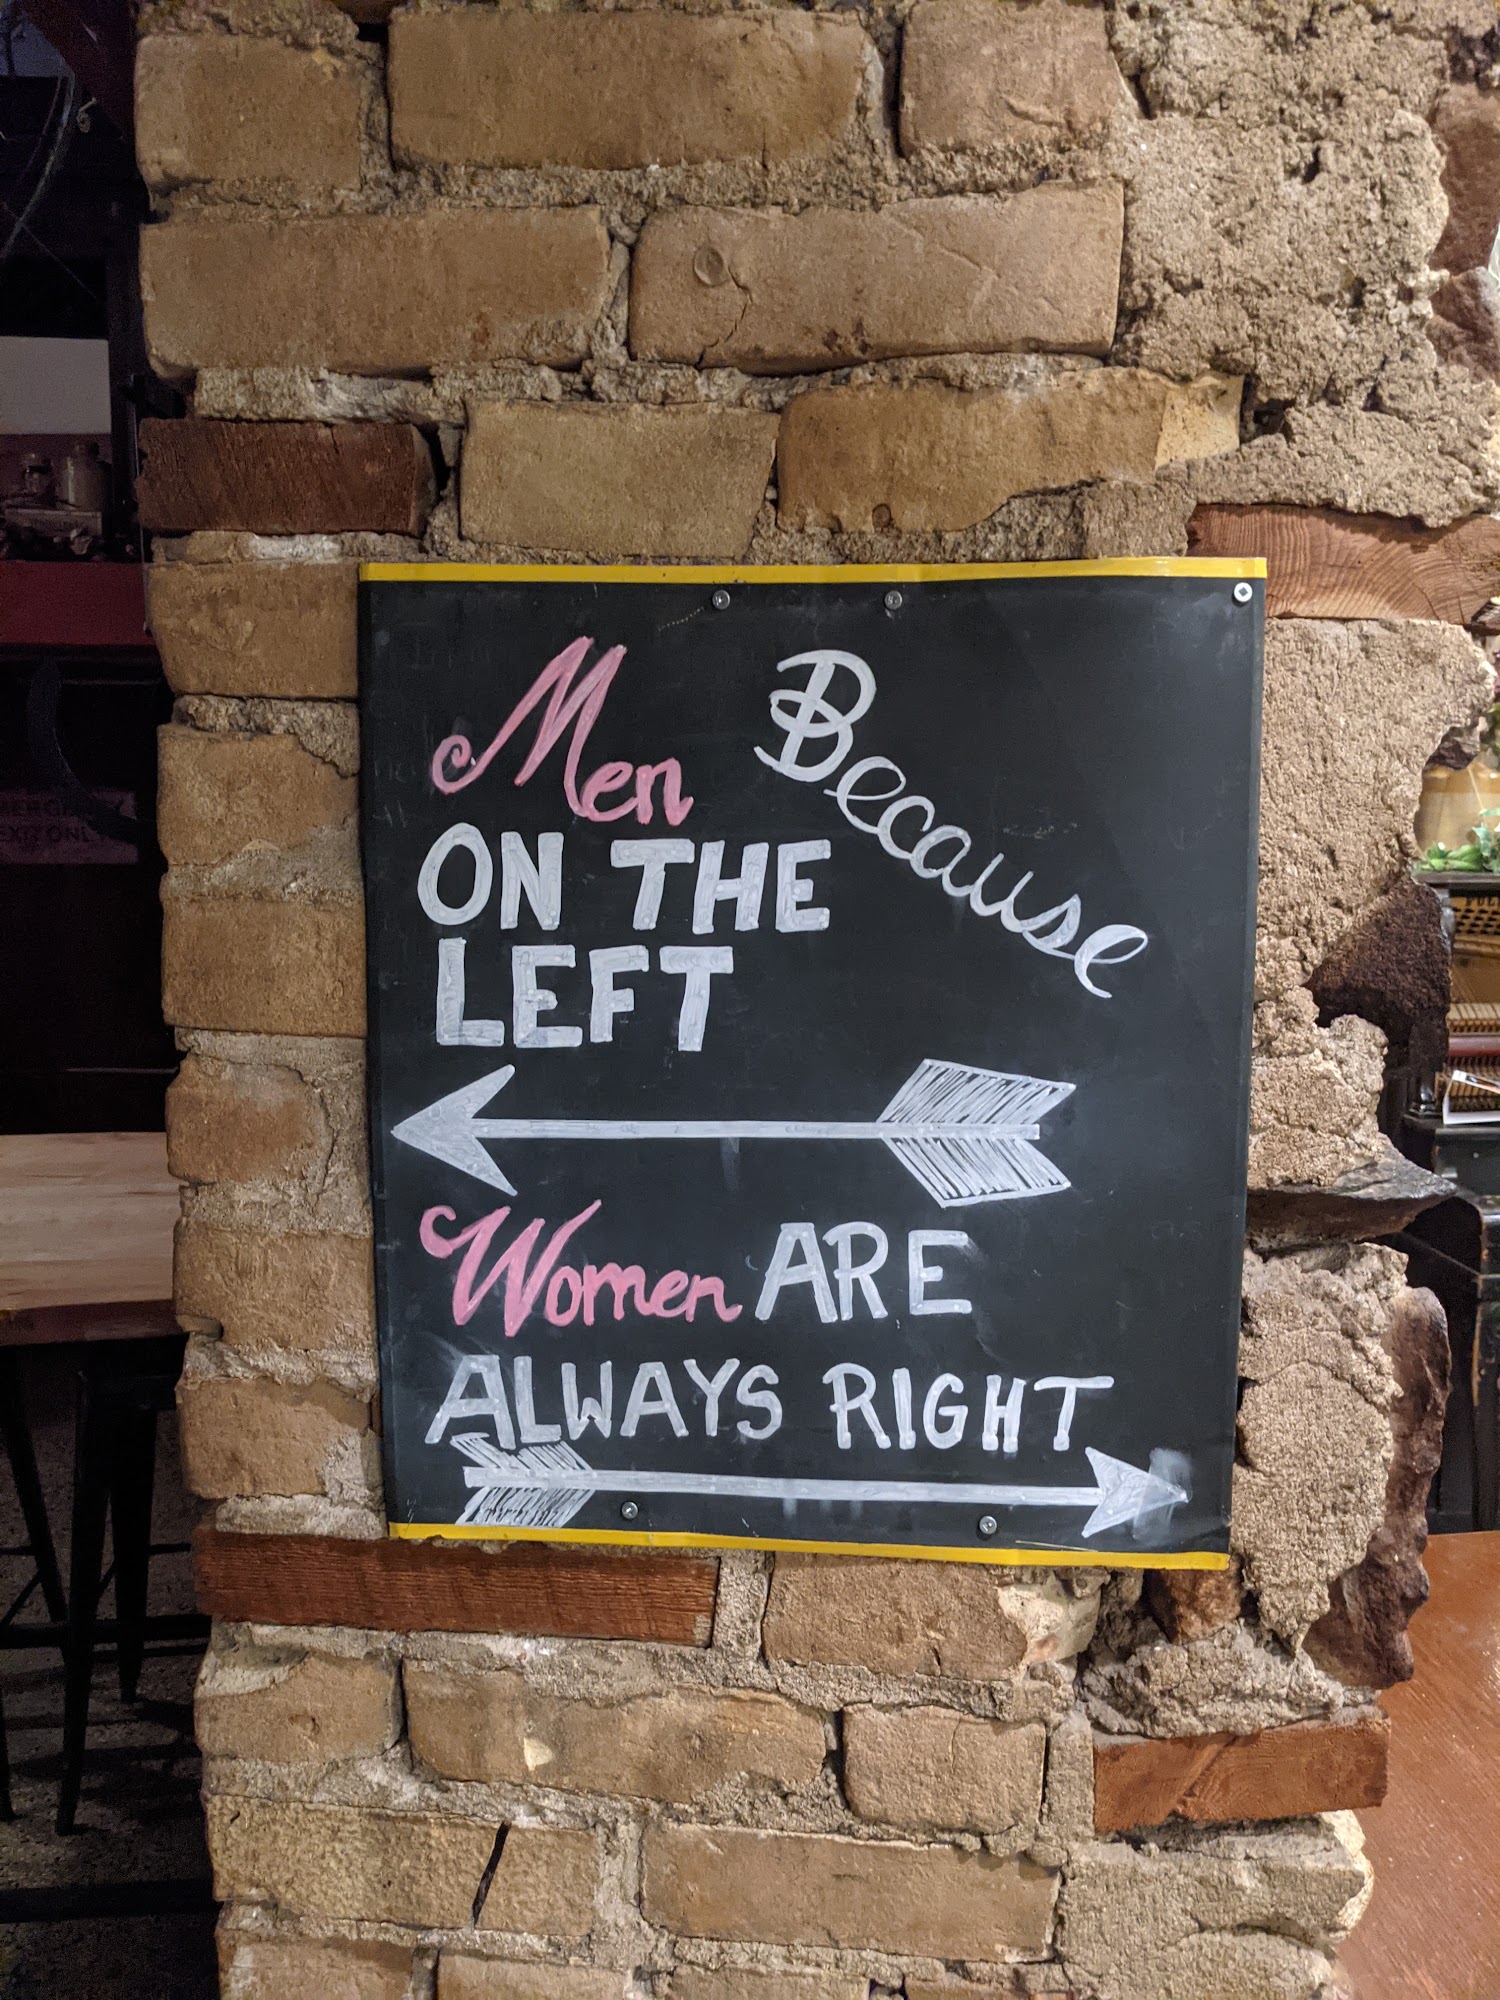 Men
ON THE
LEFT
Because
Women ARE
ALWAYS RIGHT
EXIT ONLY